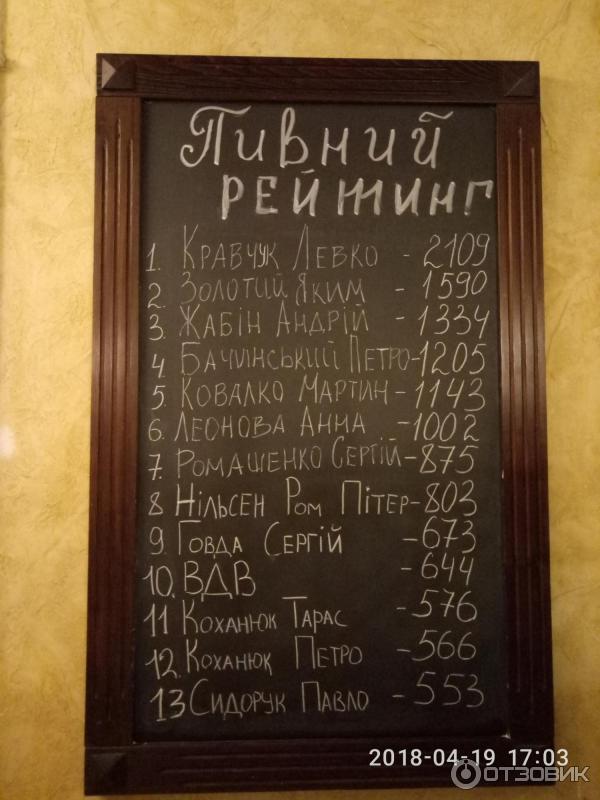 Пивний
рейтинг
1. Кравчук Левко - 2109
2. Золотий Яким - 1590
3. Жабін Андрій - 1334
4. Бачинський Петро - 1205
5. Ковалко Мартин - 1143
6. Леонова Анна - 1002
7. Ромашенко Сергій - 875
8 Нільсен Ром Пітер - 803
9. Говда Сергій - 673
10. ВДВ - 644
11 Коханюк Тарас - 576
12. Коханюк Петро - 566
13 Сидорук Павло - 553
2018-04-19 17:03
ОТЗОВИК